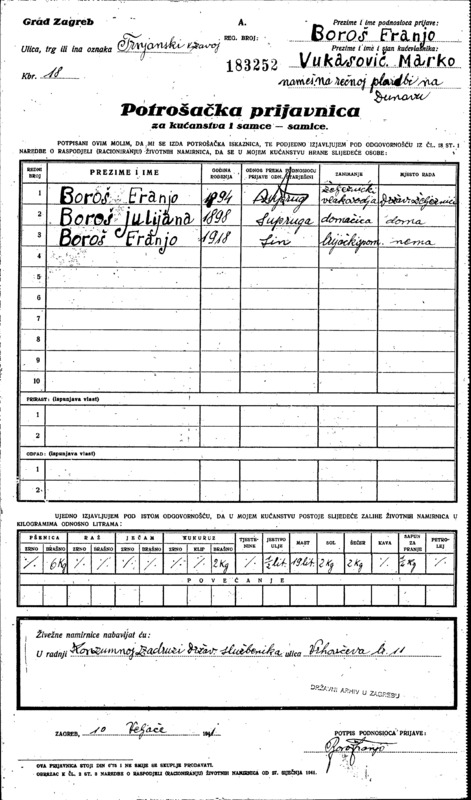 Grad Zagreb
A.
Prezime i ime podnosioca prijave:
Boroš Franjo
Ulica, trg ili ina oznaka Trnjanski zavoj
REG. BROJ:
183252
Prezime i ime i stan kućevlasnika:
Vukasović Marko
Kbr. 18
namešna rečnoj plovidbi na
Dunavu
Potrošačka prijavnica
za kućanstva i samce — samice.
POTPISANI OVIM MOLIM, DA MI SE IZDA POTROŠAČKA ISKAZNICA, TE PODJEDNO IZJAVLJUJEM POD ODGOVORNOŠĆU IZ ČL. 18 ST. 1
NAREDBE O RASPODJELI (RACIONIRANJU) ŽIVOTNIH NAMIRNICA, DA SE U MOJEM KUĆANSTVU HRANE SLIJEDEĆE OSOBE:
REDNI BROJ PREZIME I IME GODINA ROĐENJA ODNOS PREMA PODNOSIOCU PRIJAVE ODN. STARJEŠINI ZANIMANJE MJESTO RADA
1 Boroš Franjo 1894 željeznički vlakovodja Držav. željeznici
2 Boroš Julijana 1898 Supruga domaćica doma
3 Boroš Franjo 1918 Sin nema
4
5
6
7
8
9
10
PRIRAST: (ispunjava vlast)
1
2
OTPAD: (ispunjava vlast)
1
2
UJEDNO IZJAVLJUJEM POD ISTOM ODGOVORNOŠĆU, DA U MOJEM KUĆANSTVU POSTOJE SLIJEDEĆE ZALIHE ŽIVOTNIH NAMIRNICA U
KILOGRAMIMA ODNOSNO LITRAMA:
PŠENICA RAŽ JEČAM KUKURUZ TJESTENINE JESTIVO ULJE MAST SOL ŠEĆER KAVA SAPUN ZA PRANJE PETROLEJ
ZRNO BRAŠNO ZRNO BRAŠNO ZRNO BRAŠNO ZRNO KLIP BRAŠNO
·/· 6 Kg ·/· ·/· ·/· ·/· ·/· ·/· 2 Kg ·/· ½ lit. 19 lit. 2 Kg 2 Kg ·/· ½ Kg ·/·
POVEĆANJE
Živežne namirnice nabavljat ću:
U radnji Konzumnoj Zadruzi Držav. službenika ulica Vrhovčeva br. 11
DRŽAVNI ARHIV U ZAGREBU
ZAGREB, 10 Veljače 1941
POTPIS PODNOSIOCA PRIJAVE:
Boroš Franjo
OVA PRIJAVNICA STOJI DIN 0'75 I NE SMIJE SE SKUPLJE PRODAVATI.
OBRAZAC K ČL. 2 ST. 2 NAREDBE O RASPODJELI (RACIONIRANJU) ŽIVOTNIH NAMIRNICA OD 27. SIJEČNJA 1941.